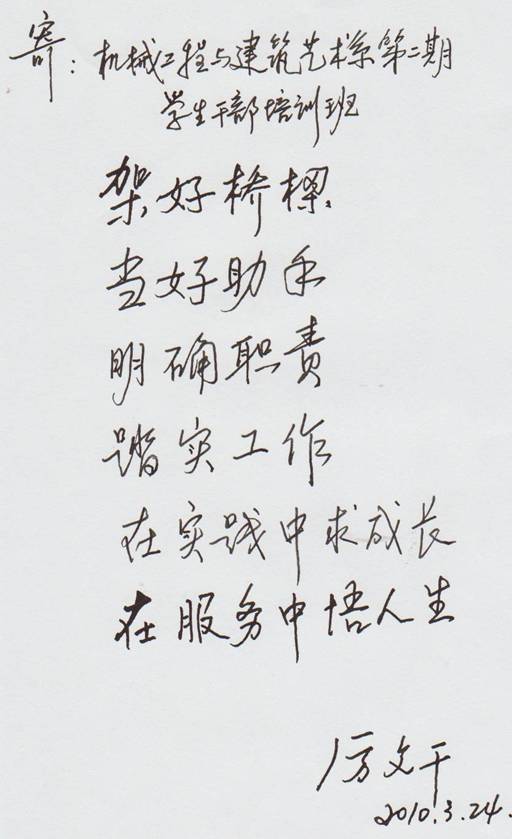 寄：机械工程与建筑艺术系第二期
学生干部培训班
架好桥樑
当好助手
明确职责
踏实工作
在实践中求成长
在服务中悟人生
厉文干
2010.3.24.